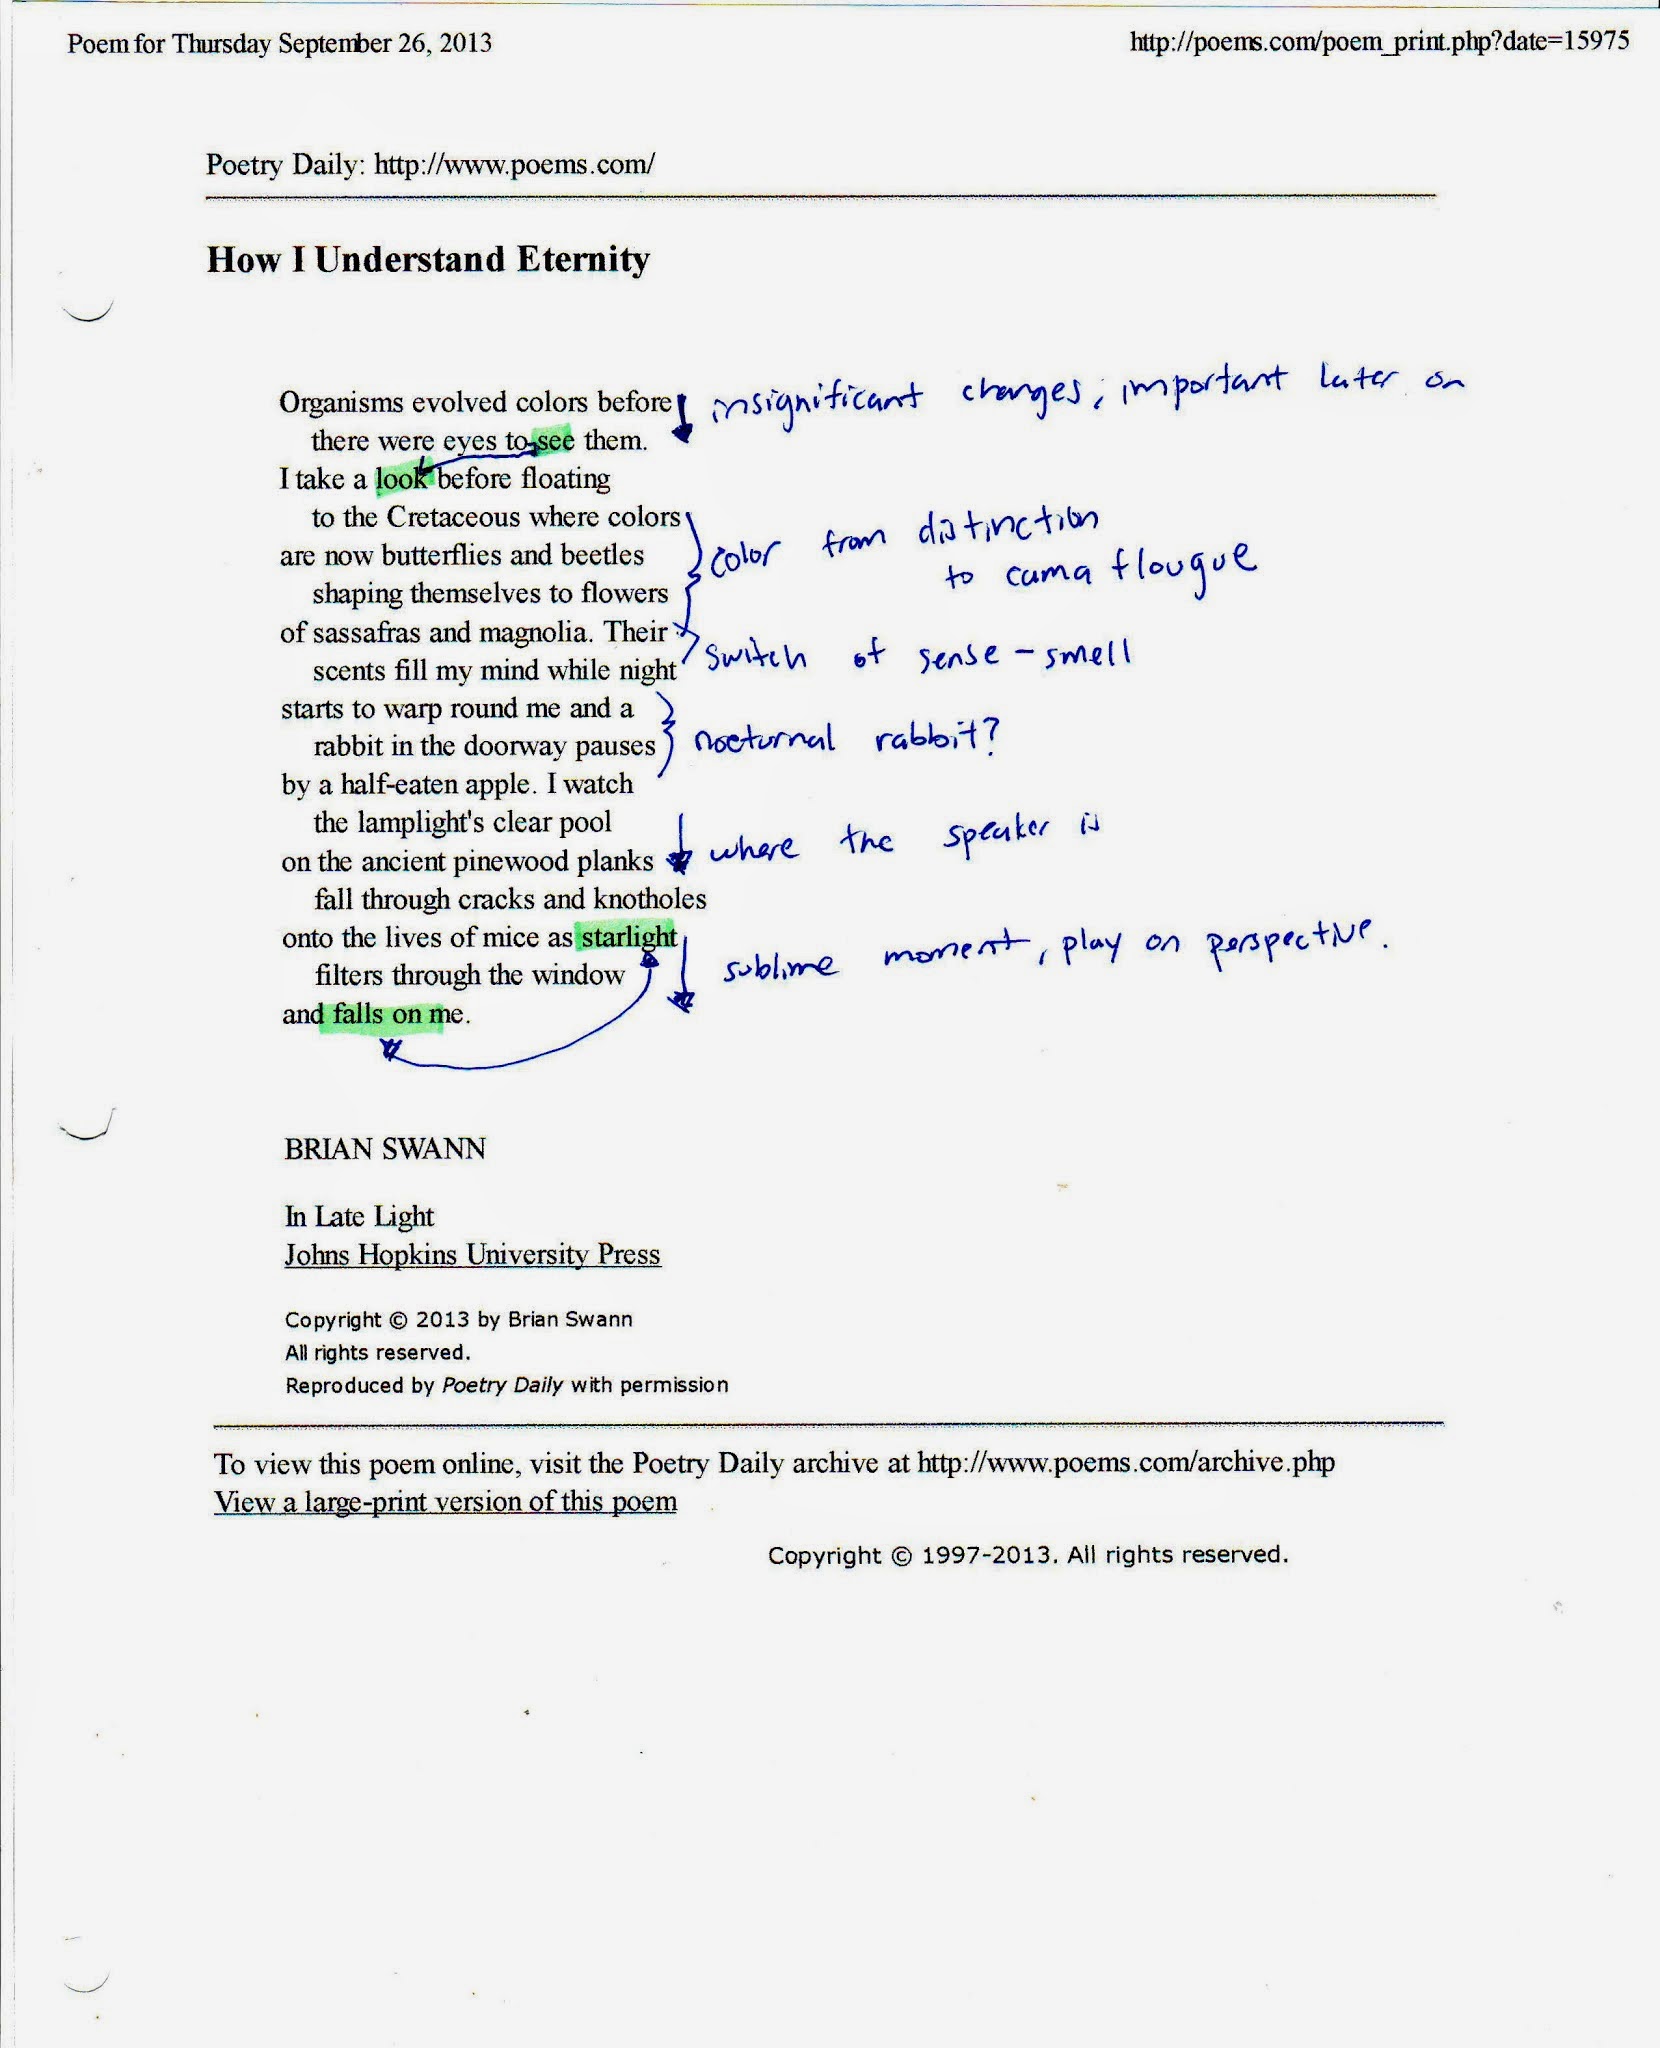 Poem for Thursday September 26, 2013 http://poems.com/poem_print.php?date=15975
Poetry Daily: http://www.poems.com/
How I Understand Eternity
Organisms evolved colors before insignificant changes, important later on
there were eyes to see them.
I take a look before floating
to the Cretaceous where colors color from distinction
are now butterflies and beetles to camaflougue
shaping themselves to flowers
of sassafras and magnolia. Their switch of sense - smell
scents fill my mind while night
starts to warp round me and a
rabbit in the doorway pauses nocturnal rabbit?
by a half-eaten apple. I watch
the lamplight's clear pool
on the ancient pinewood planks where the speaker is
fall through cracks and knotholes
onto the lives of mice as starlight sublime moment, play on perspective.
filters through the window
and falls on me.
BRIAN SWANN
In Late Light
Johns Hopkins University Press
Copyright © 2013 by Brian Swann
All rights reserved.
Reproduced by Poetry Daily with permission
To view this poem online, visit the Poetry Daily archive at http://www.poems.com/archive.php
View a large-print version of this poem
Copyright © 1997-2013. All rights reserved.